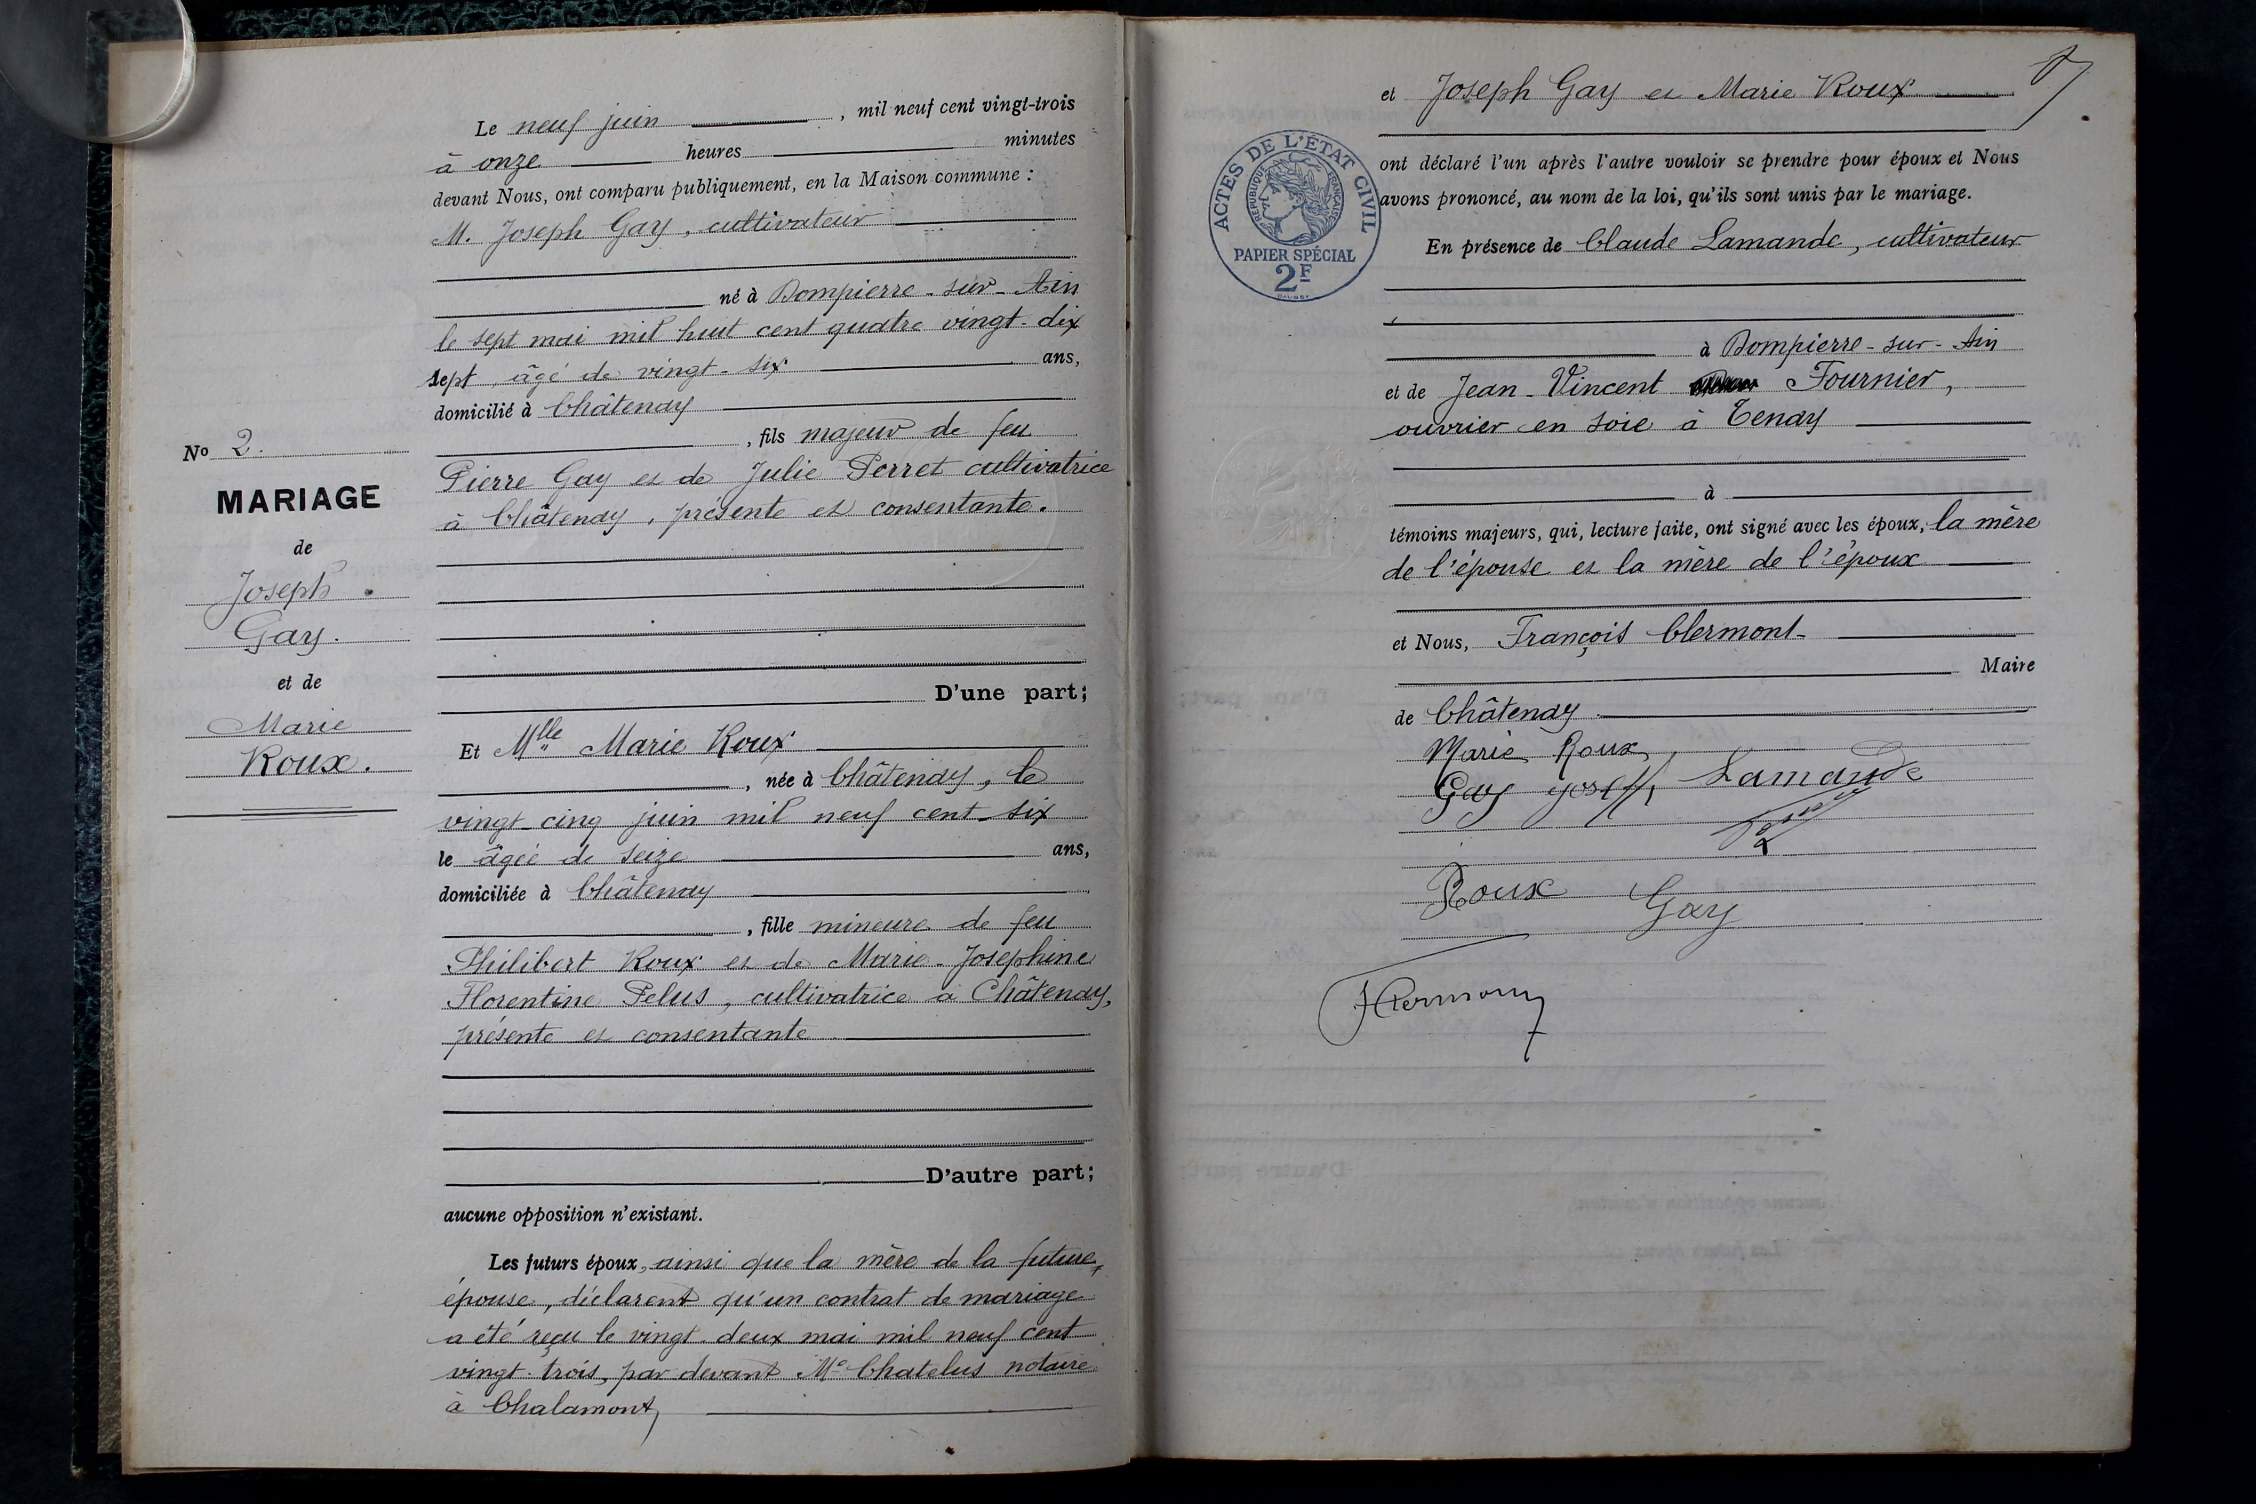 Le neuf juin , mil neuf cent vingt-trois
à onze heures minutes
devant Nous, ont comparu publiquement, en la Maison commune :
M. Joseph Gay, cultivateur
né à Dompierre-sur-Ain
le sept mai mil huit cent quatre vingt-dix
sept, âgé de vingt-six ans,
domicilié à Châtenay
, fils majeur de feu
Pierre Gay et de Julie Perret cultivatrice
à Châtenay, présente et consentante.
D'une part;
Et Mlle Marie Roux
, née à Châtenay, le
vingt-cinq juin mil neuf cent-six
le âgée de seize ans,
domiciliée à Châtenay
, fille mineure de feu
Philibert Roux et de Marie-Josephine
Florentine Pelus, cultivatrice à Châtenay,
présente et consentante
D'autre part;
aucune opposition n'existant.
Les futurs époux, ainsi que la mère de la future
épouse, déclarent qu'un contrat de mariage
a été reçu le vingt-deux mai mil neuf cent
vingt-trois, par devant Me Chatelus notaire
à Chalamont,
No 2.
MARIAGE
de
Joseph
Gay.
et de
Marie
Roux.
et Joseph Gay et Marie Roux
ont déclaré l'un après l'autre vouloir se prendre pour époux et Nous
avons prononcé, au nom de la loi, qu'ils sont unis par le mariage.
ACTES DE L'ÉTAT CIVIL
RÉPUBLIQUE FRANÇAISE
PAPIER SPÉCIAL
2F
En présence de Claude Lamande, cultivateur
à Dompierre-sur-Ain
et de Jean-Vincent Fournier,
ouvrier en soie à Tenay
à
témoins majeurs, qui, lecture faite, ont signé avec les époux, la mère
de l'épouse et la mère de l'époux
et Nous, François Clermont
Maire
de Châtenay
Marie Roux
Gay Joseph Lamande
Roux Gay
FClermont